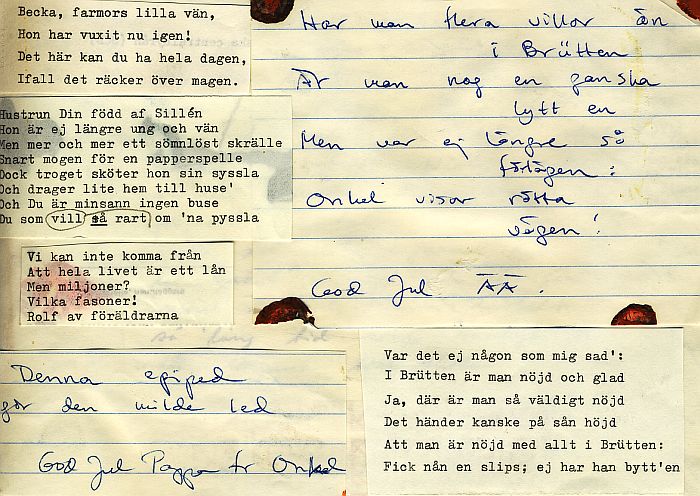 Becka, farmors lilla vän,
Hon har vuxit nu igen!
Det här kan du ha hela dagen,
Ifall det räcker över magen.
Hustrun Din född af Sillén
Hon är ej längre ung och vän
Men mer och mer ett sömnlöst skrälle
Snart mogen för en papperspelle
Dock troget sköter hon sin syssla
Och drager lite hem till huse'
Och Du är minsann ingen buse
Du som vill så rart om 'na pyssla
Vi kan inte komma från
Att hela livet är ett lån
Men miljoner?
Vilka fasoner!
Rolf av föräldrarna
Denna epiped
gör den milde led
God Jul Pappa fr Onkel
Har man flera villor än
i Brütten
Är man nog en ganska
lytt en
Men var ej längre så
förlägen:
Onkel visar rätta
vägen!
God Jul ÄÄ.
Var det ej någon som mig sad':
I Brütten är man nöjd och glad
Ja, där är man så väldigt nöjd
Det händer kanske på sån höjd
Att man är nöjd med allt i Brütten:
Fick nån en slips; ej har han bytt'en